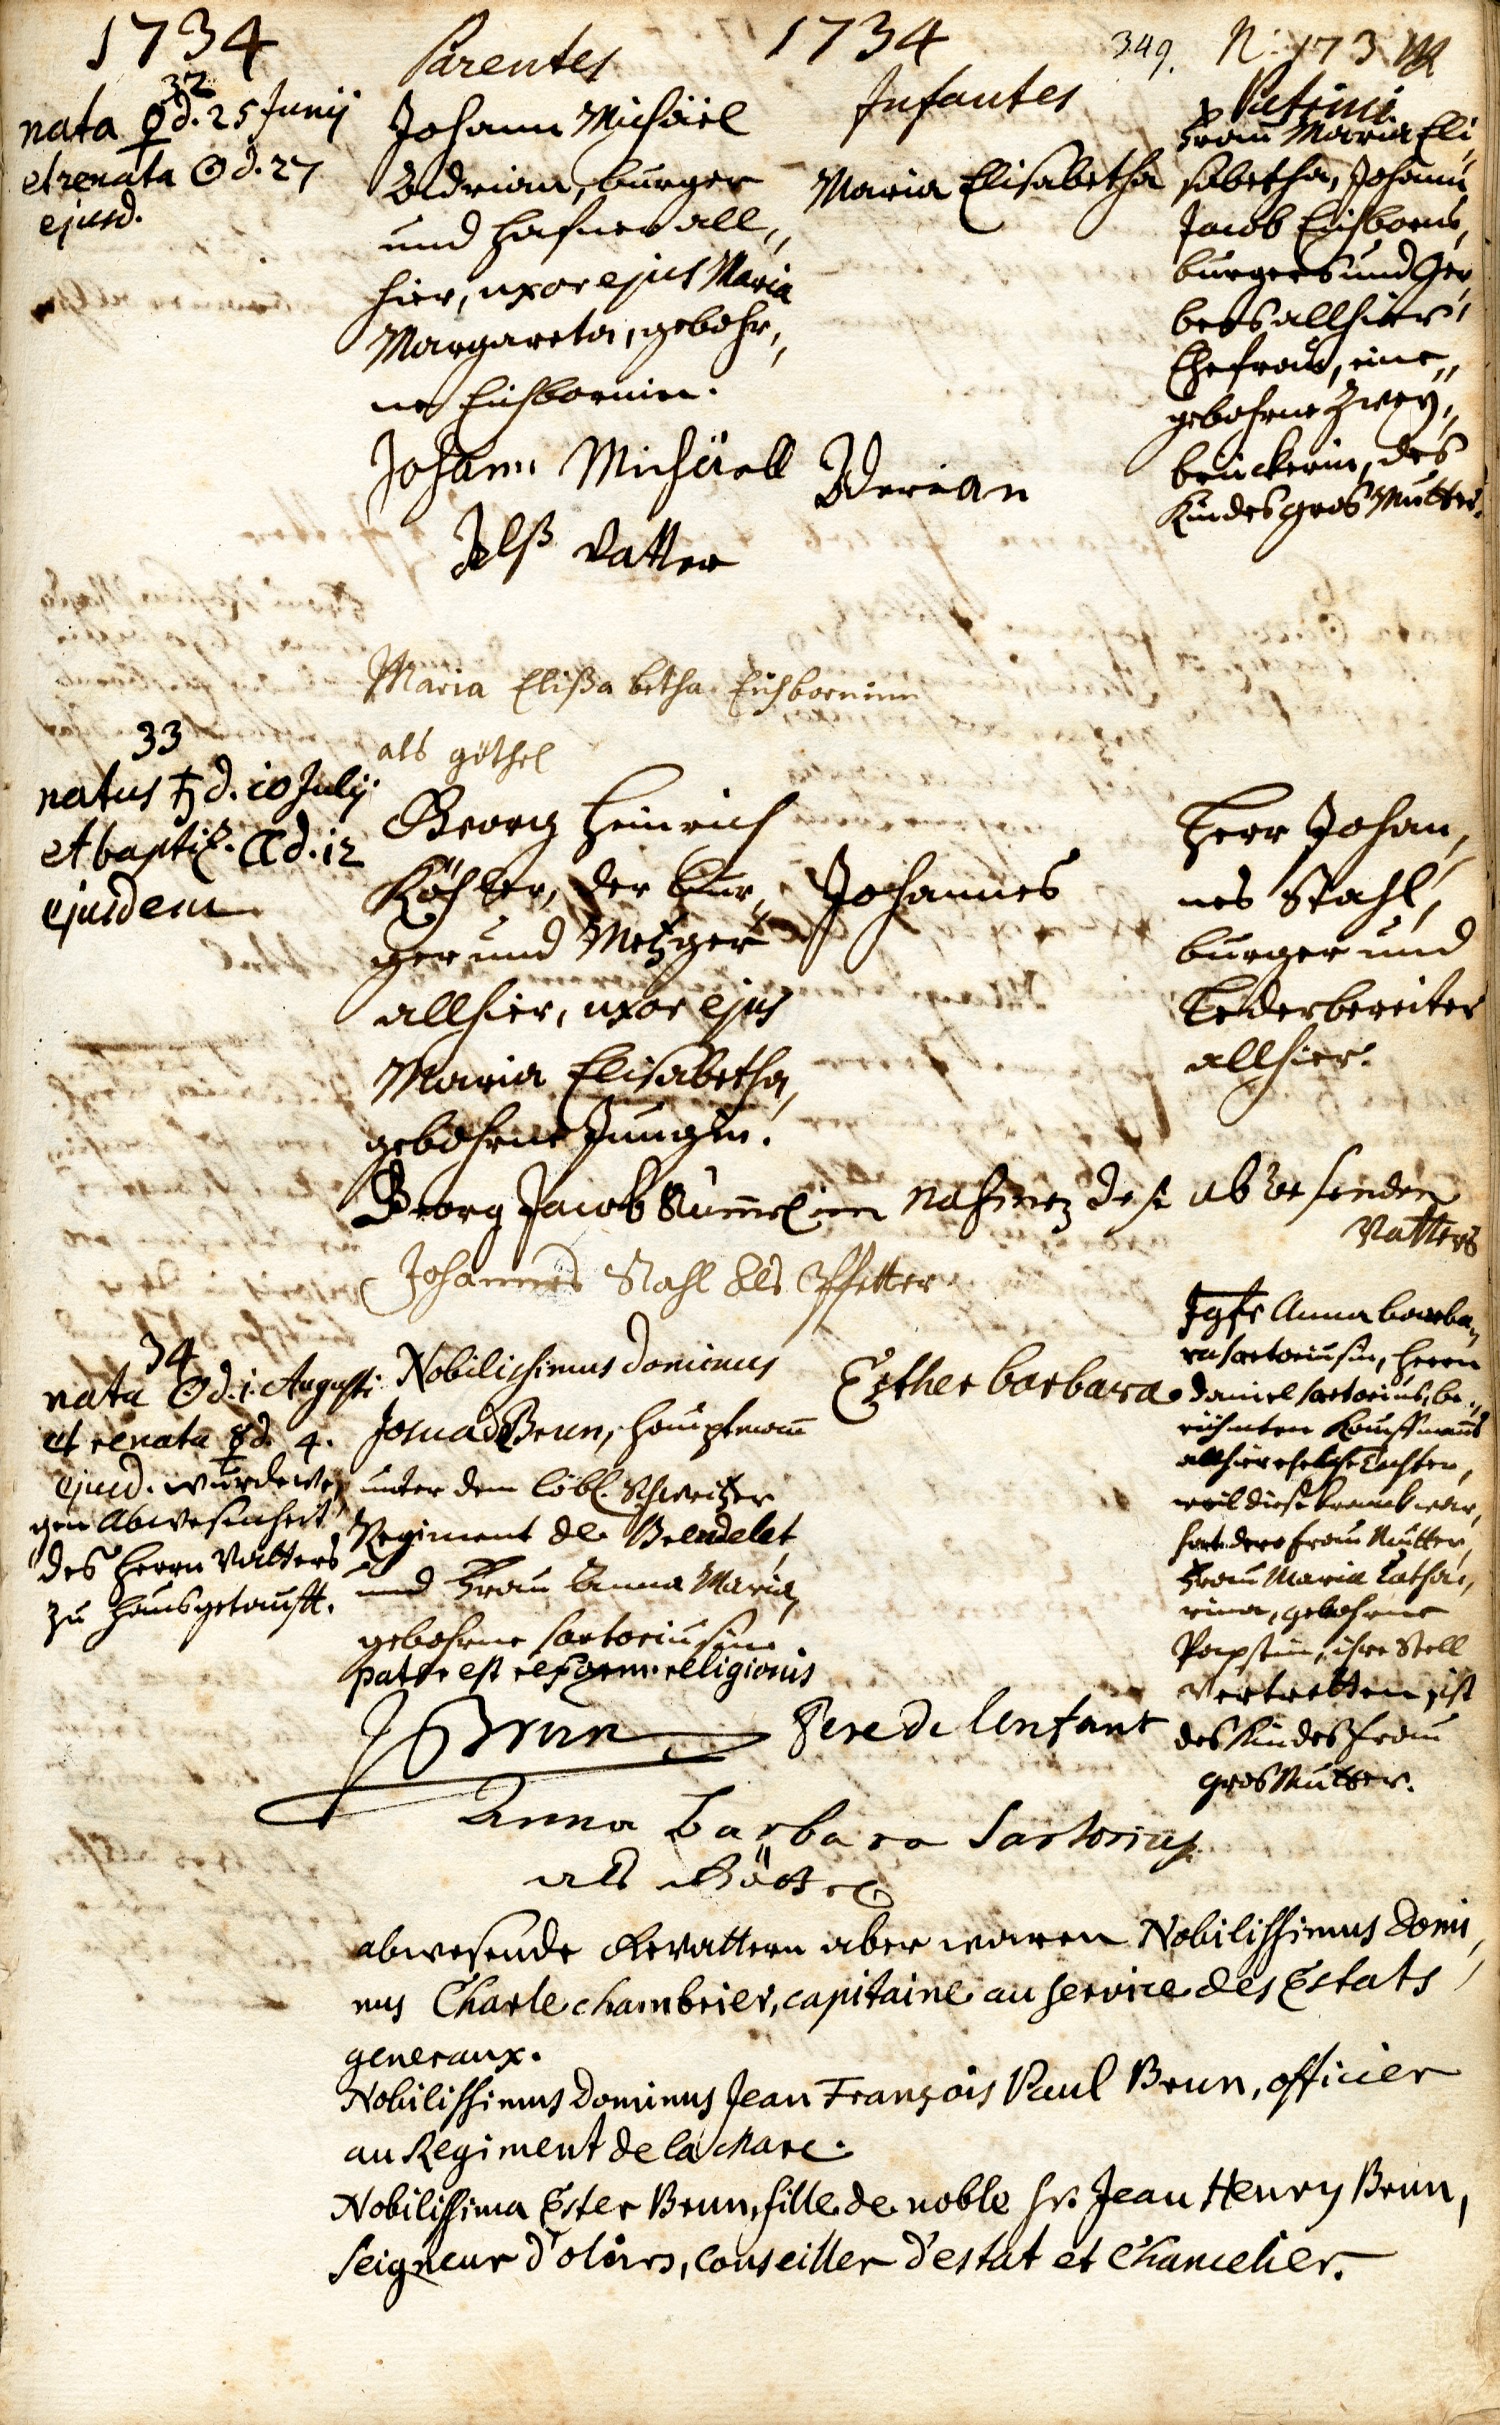 1734
Parentes
1734
Infantes
349.
N. 173
Patrini
32
nata ♀ d. 25 Junij
et renata ☉ d. 27
ejusd.
Johann Michäel
Adrian, burger
und Hafner all„
hier, uxor ejus Maria
Margareta, gebohr„
ne Eichbornin.
Maria Elisabetha
Frau Maria Eli„
sabetha, Johann
Jacob Eichborns,
burgers und Ger„
bers allhier,
Ehefrau, eine„
gebohrne Zwey„
brückerin, des
Kindes gros Mutter.
Johann Michäell Aderian
Alß Vatter
Maria Elißabetha Eichbornin
als göthel
33
natus ♄ d. 10 Julij
et baptiz. ☾ d. 12
ejusdem
Georg Heinrich
Köhler, der bur„
ger und Metzger
allhier, uxor ejus
Maria Elisabetha,
gebohrne Jungin.
Johannes
Herr Johan„
nes Stahl,
burger und
Lederbereiter
allhier.
Georg Jacob im nahmen deß abwesenden
Vatters
Johannes Stahl als Pfetter
34
nata ☉ d. 1. Augusti
et renata ☿ d. 4.
ejusd. wurde we„
gen Abwesenheit
des Herrn Vatters
zu Haus getaufft.
Nobilissimus dominus
Josua Brun, Hauptmann
unter dem löbl. Schweitzer
Regiment de
und Frau Anna Maria,
gebohrne Sartoriusin.
pater est reform. religionis
Esther barbara
Jgfr Anna barba„
ra Sartoriusin, Herrn
Daniel Sartorius, be„
rühmten Kauffmanns
allhier eheliche Tochter,
weil diese kranck war,
hat dero Frau Mutter,
Frau Maria Catha„
rina, gebohrne
Papstin, ihre Stell
Vertretten, ist
des Kindes Frau
gros Mutter.
J Brun Pere de lenfant
Anna Barbara Sartorius
als Göttel
abwesende Gevattern aber waren Nobilissimus Domi„
nus Charle chambrier, capitaine au service des Estats
generaux.
Nobilissimus Dominus Jean François Paul Brun, officier
au Regiment de la Marc.
Nobilissima Ester Brun, fille de noble Hr. Jean Henry Brun,
Seigneur d'olivrs, conseiller d'estat et Chancelier.